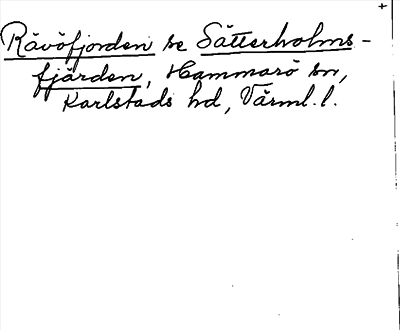 +
Rävöfjorden se Sätterholms-
fjärden, Hammarö sn,
Karlstads hd, Värml. l.